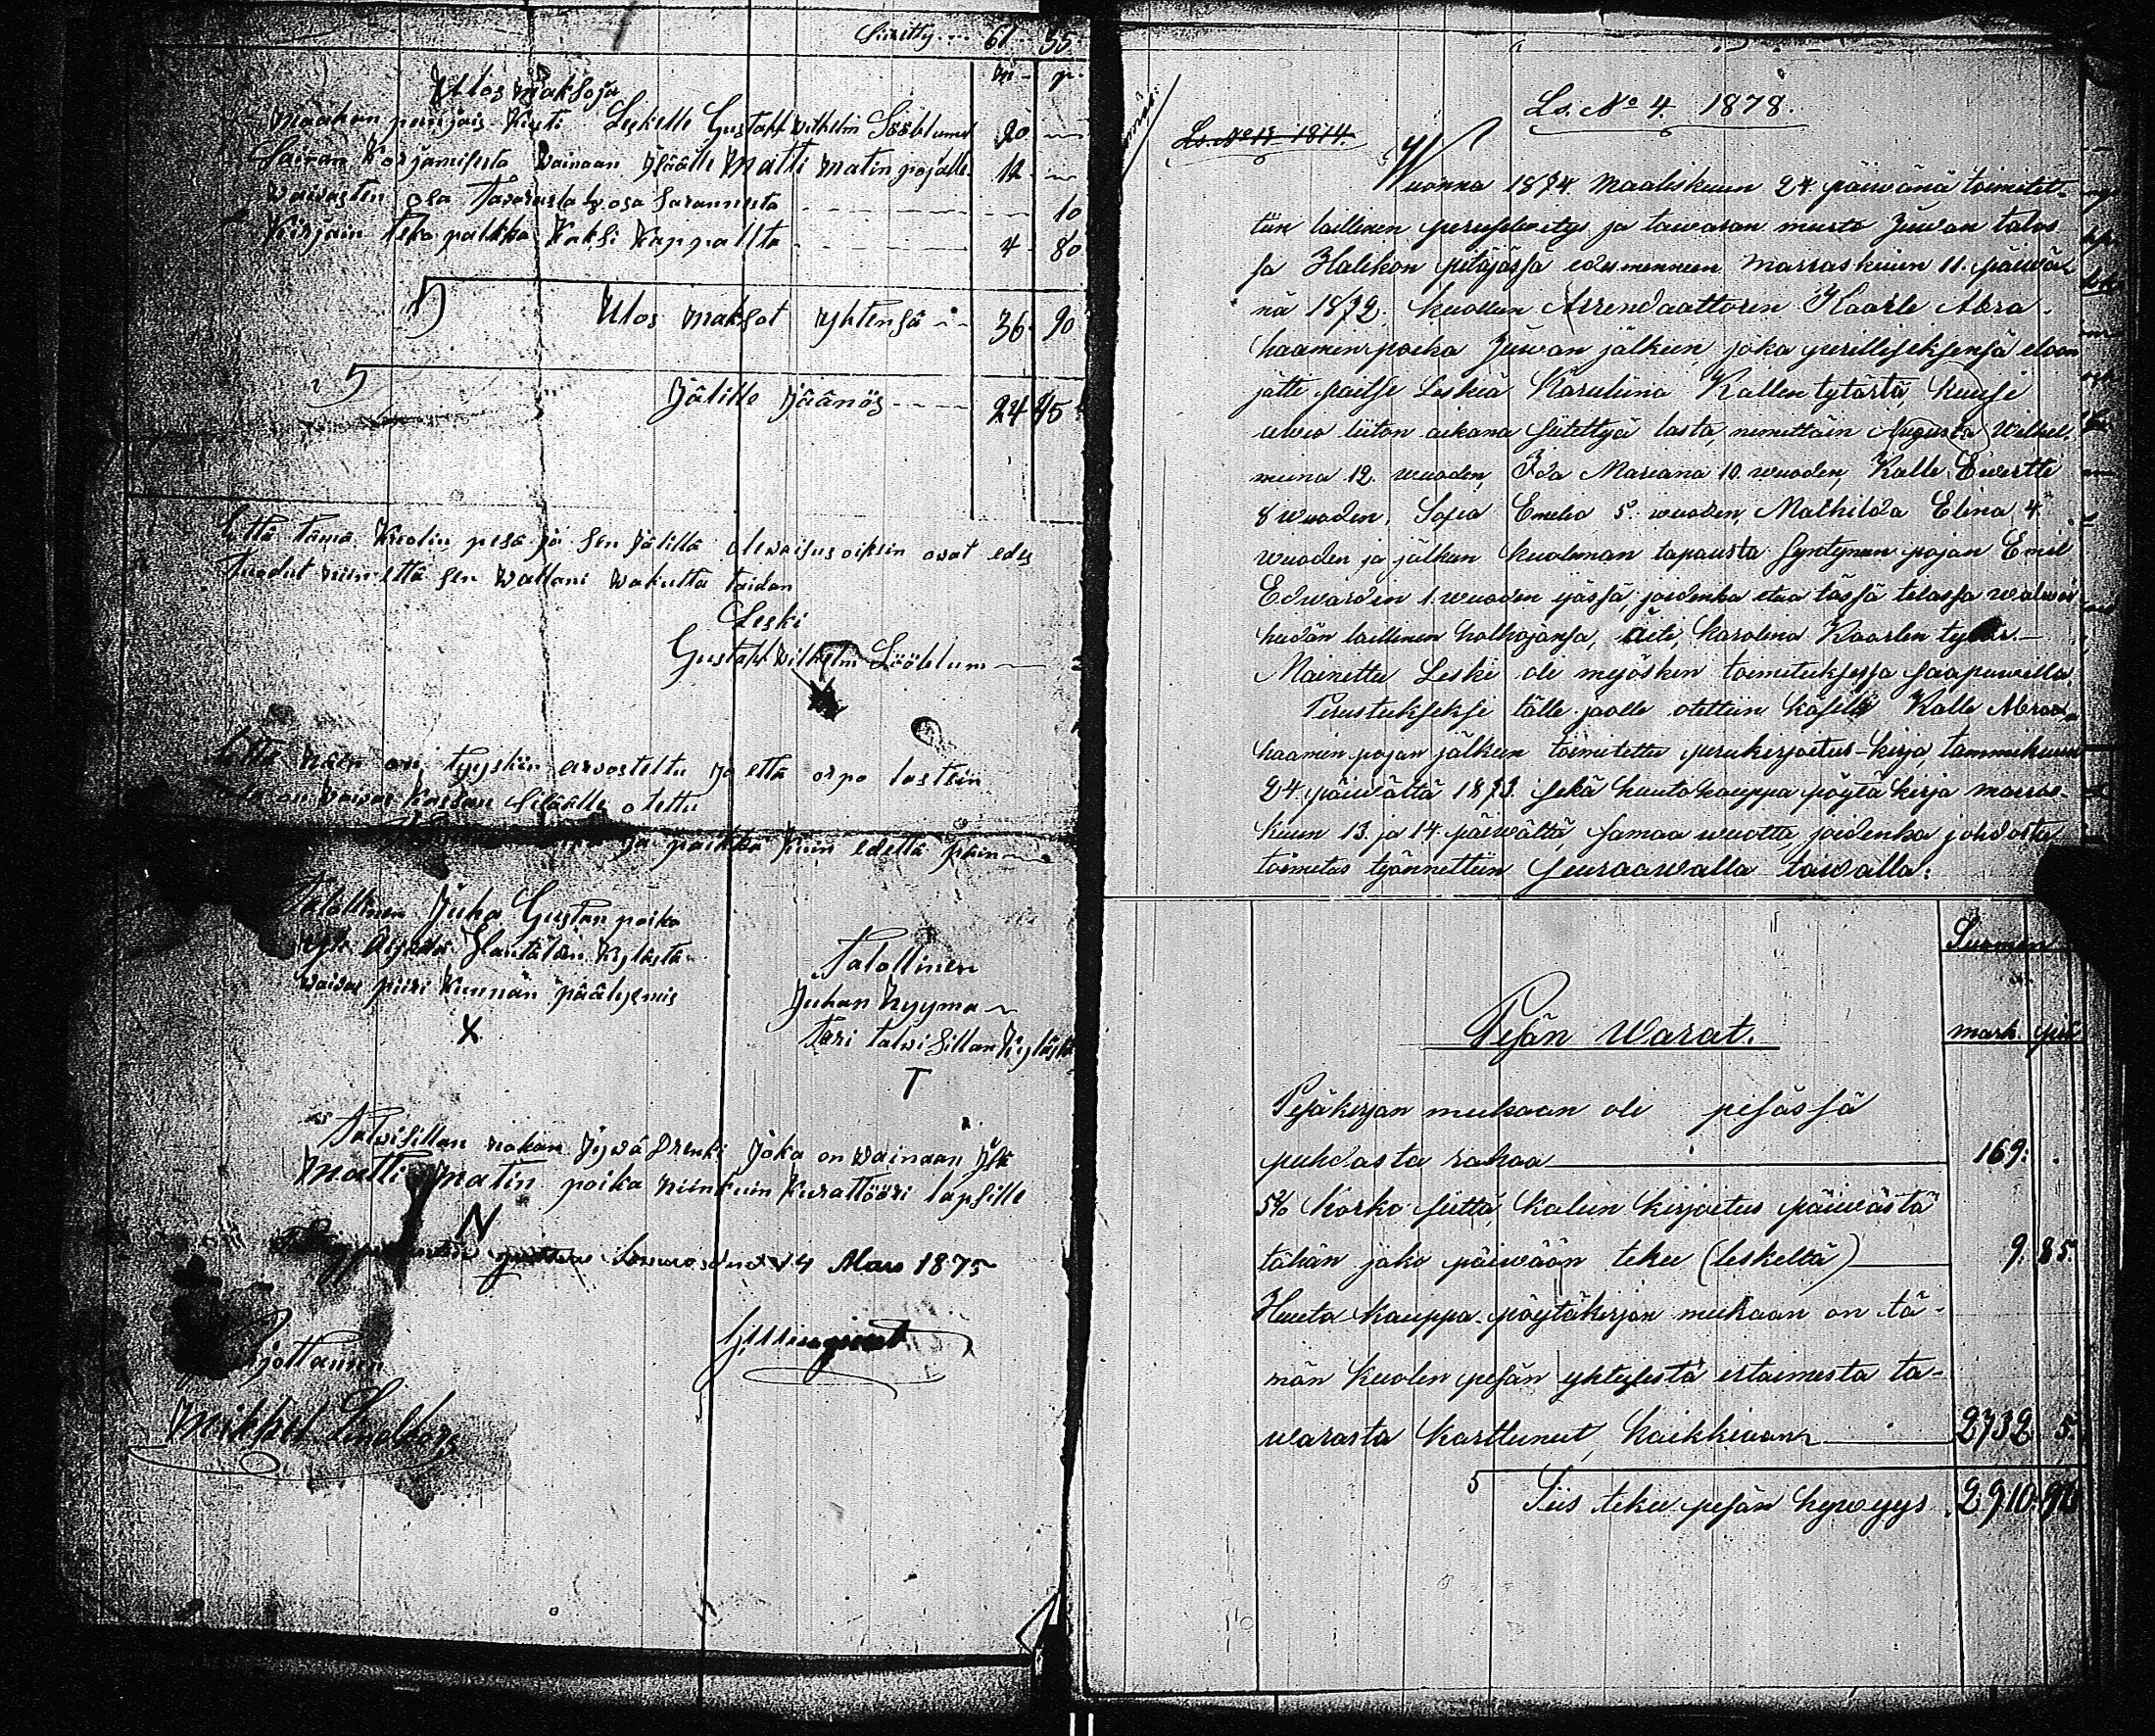 Siiretty 61 35
M p
Ulos maksoja
Maahan panijais Kusti Leskelle Gustaff Wilhelm Lööblumil 20
Sairan Korjamisesta Wainaan Isäälle Matti Matin pojalle 12
Waivasten osa Tavarasta osa Sarannesta 10
Kirjain Teko palkka Kaksi Kappaletta 4 80
Ulos maksot yhtensä 36 90
Jälille Jäänös 24 45
Että tämä Kuolin pesä ja sen Jälillä olewaisus oikein owat edes
Tuodut niin että sen Wallani Wakutta taidan
Leski
Gustaff Wilhelm Lööblum
Että näin on tyyskin arvosteltu ja että orpo lastein
on Waivas Kassan Siläälle otettu
ja paikka kuin edellä päin
Talollinen Juha Gustan poika
Kylästä
Waivas piiri Kunnan päälysmis
X
Talollinen
Juhan Nyyma
Tari Talwisillan Kylästä
T
Talwisillan Drenki Joka on Wainaan Isä
Matti Matin poika niinkuin Kurattööri lapsille
N
14 Mars 1875
Mikkel Lindberg
Ls. No 4. 1878.
Ls. No 11 1874.
Wuonna 1874 Maaliskuun 24 päiwänä toimitet-
tiin laillinen perusselwitys ja tawaran muuto Juwan talos
sa Halikon pitäjässä edesmenneen Marraskuun 11. päiwä
nä 1872. kuolleen Arrendaattorin Kaarle Abra
haaminpoika Juwan jälkeen, joka perilliseksensä eloon
jätti paitse Leskiä Karuliina Kallen tytärtä, kuusi
awio liiton aikana siitettyä lasta, nimittäin Augusta Wilhel-
miina 12. wuoden, Ida Mariana 10 wuoden, Kalle Ewertti
8 wuoden, Sofia Emelia 5. wuoden, Mathilda Elina 4
wuoden ja jälkeen kuoleman tapausta syntyneen pojan Emil
Edwardin 1. wuoden ijässä, joidenka etua tässä tilassa walwoi
heidän laillinen holhojansa, äiti, Karolina Kaarlen tytär.
Mainittu Leski oli myöskin toimituksessa saapuwilla.
Perustukseksi tälle jaolle otettiin käsille Kalle Abra-
haamin pojan jälkeen toimitettu perukirjoitus-kirja, tammikuun
24 päiwältä 1873. sekä huutokauppa pöytäkirja marras-
kuun 13. ja 14. päiwältä, samaa wuotta, joidenka johdosta
toimitus työnnettiin seuraawalla tawalla:
Suomen
mark. pen
Pesän Warat.
Pesäkirjan mukaan oli pesässä
puhdasta rahaa 169:
5% korko siittä, kalun kirjoitus päiwästä
tähän jako päiwään tekee (leskeltä) 9. 85.
Huuto-kauppa-pöytäkirjan mukaan on tä-
män kuolen pesän yhteisestä irtaimesta ta-
warasta karttunut, kaikkiaan 2732 5.
5 Siis tekee pesän hywyys 2910 90